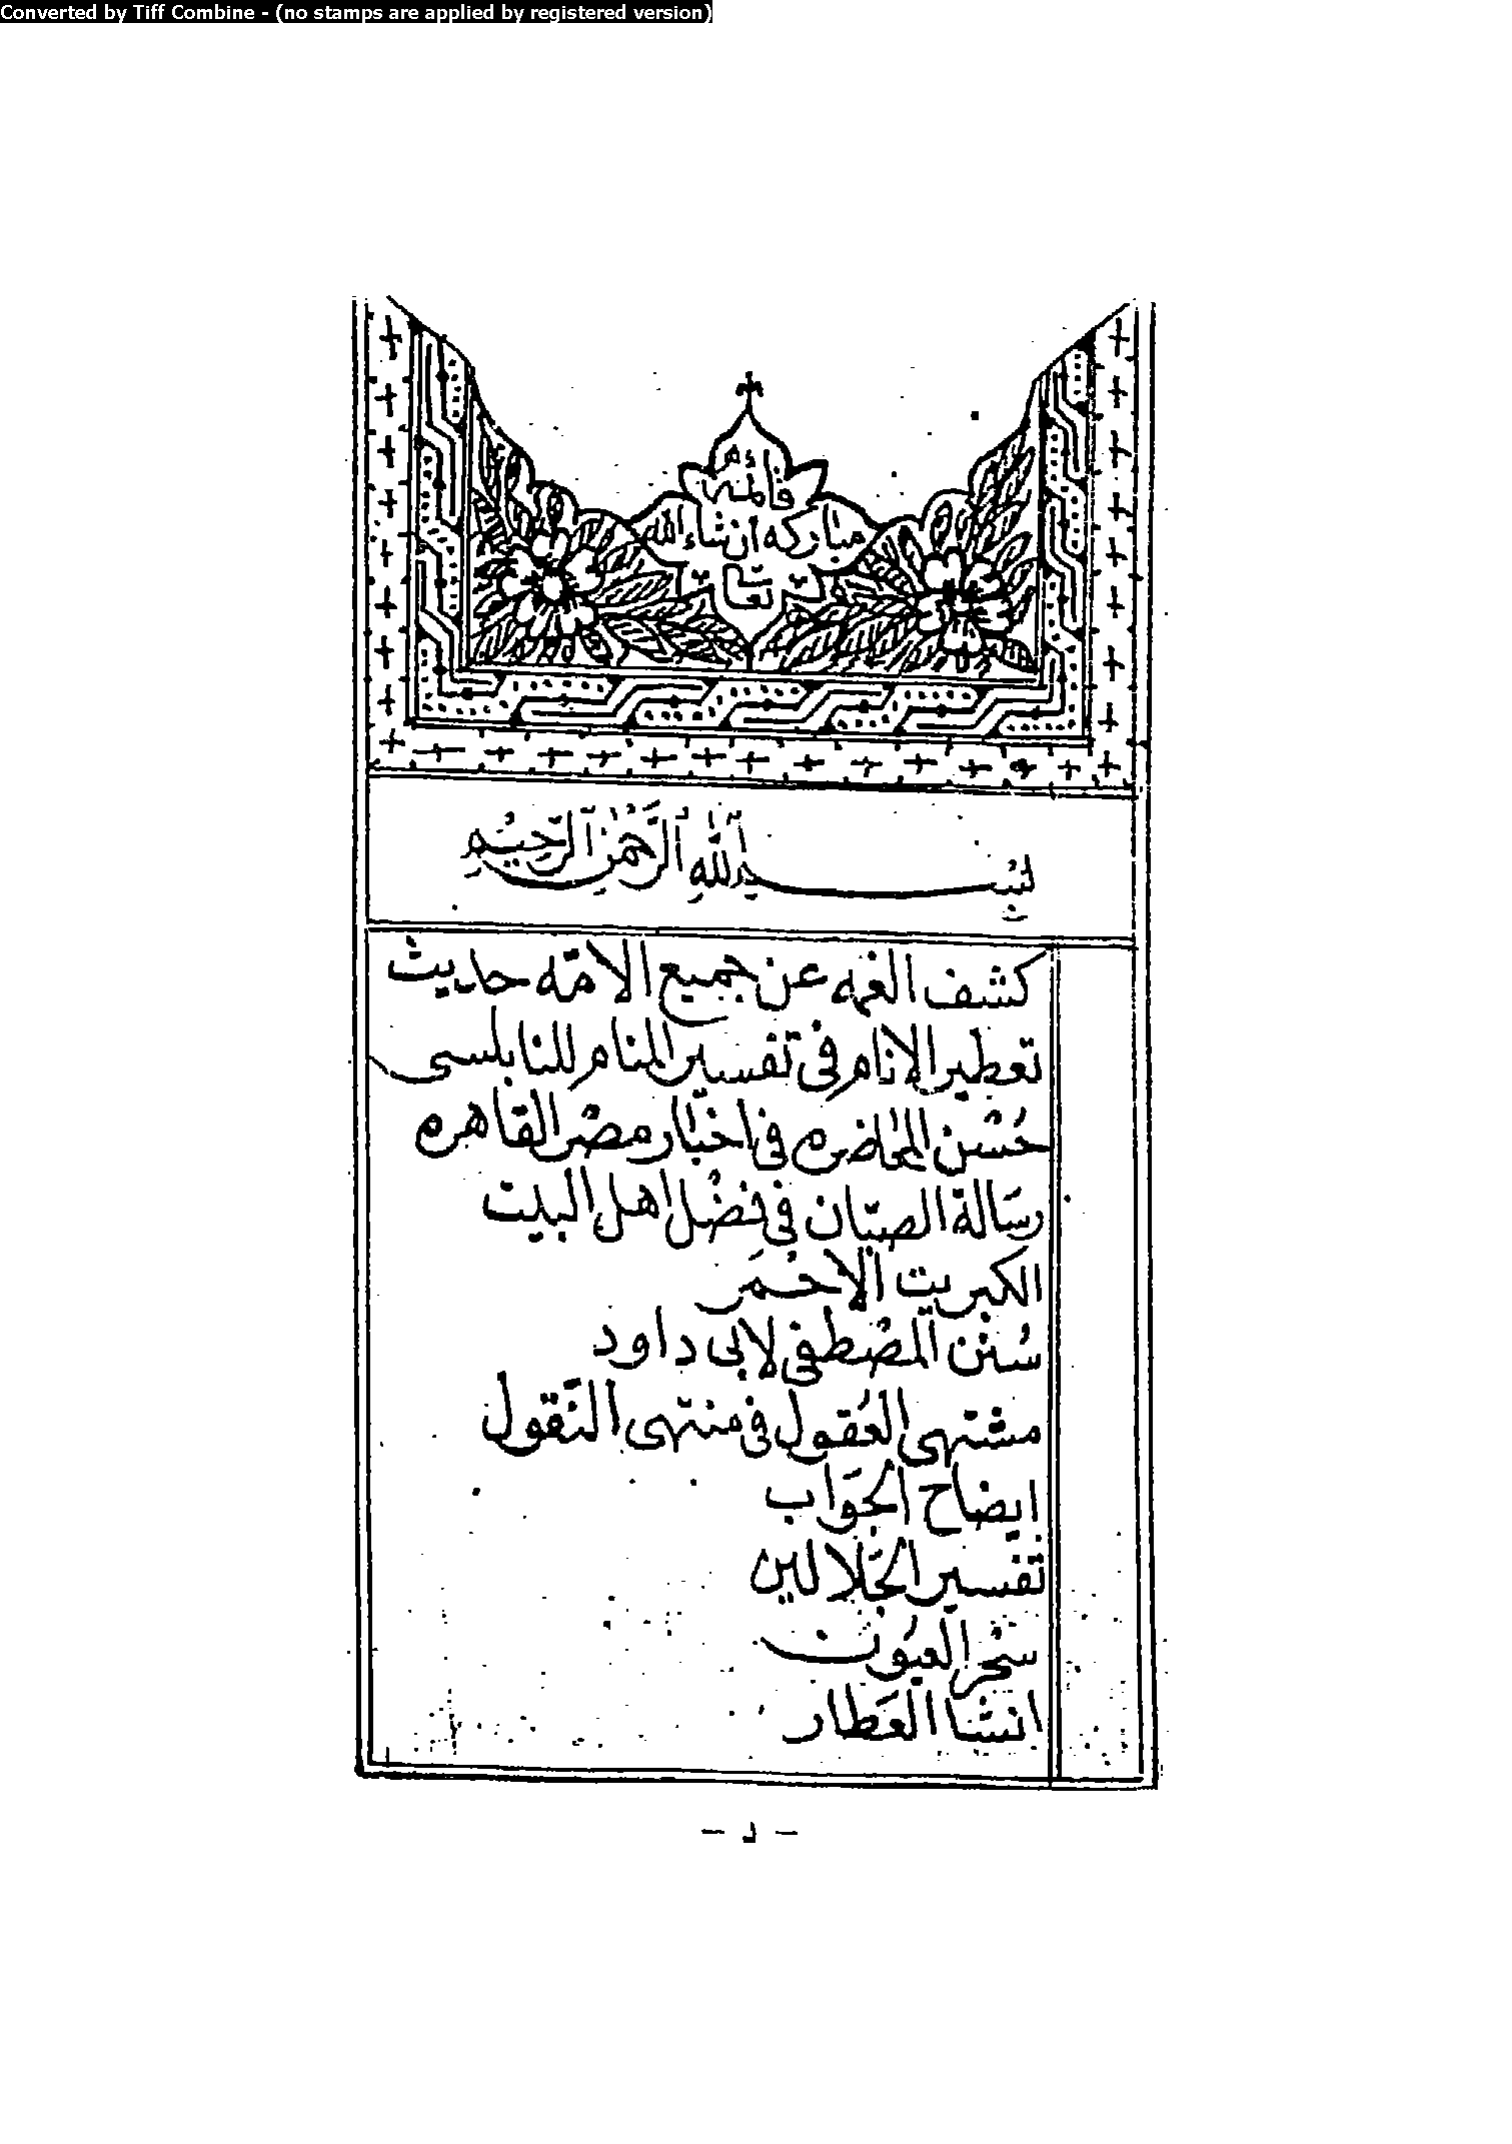 Converted by Tiff Combine - (no stamps are applied by registered version)
قائمه
مباركه ان شاء الله
تعا
بسم الله الرحمن الرحيم
كشف الغمه عن جميع الامّه حديث
تعطير الانام فى تفسير المنام للنابلسى
حُسْن المحَاضره فى اخبَار مصْر القاهره
رسَالة الصبّان فى فضْل اهل البيت
الكبريت الاحْمَر
سُنن المصْطفى لابى داود
مشتهى العُقول فى منتهى النقول
ايضاح الجوَاب
تفسير الجَلالين
سحْر العيُون
انشَا العَطار